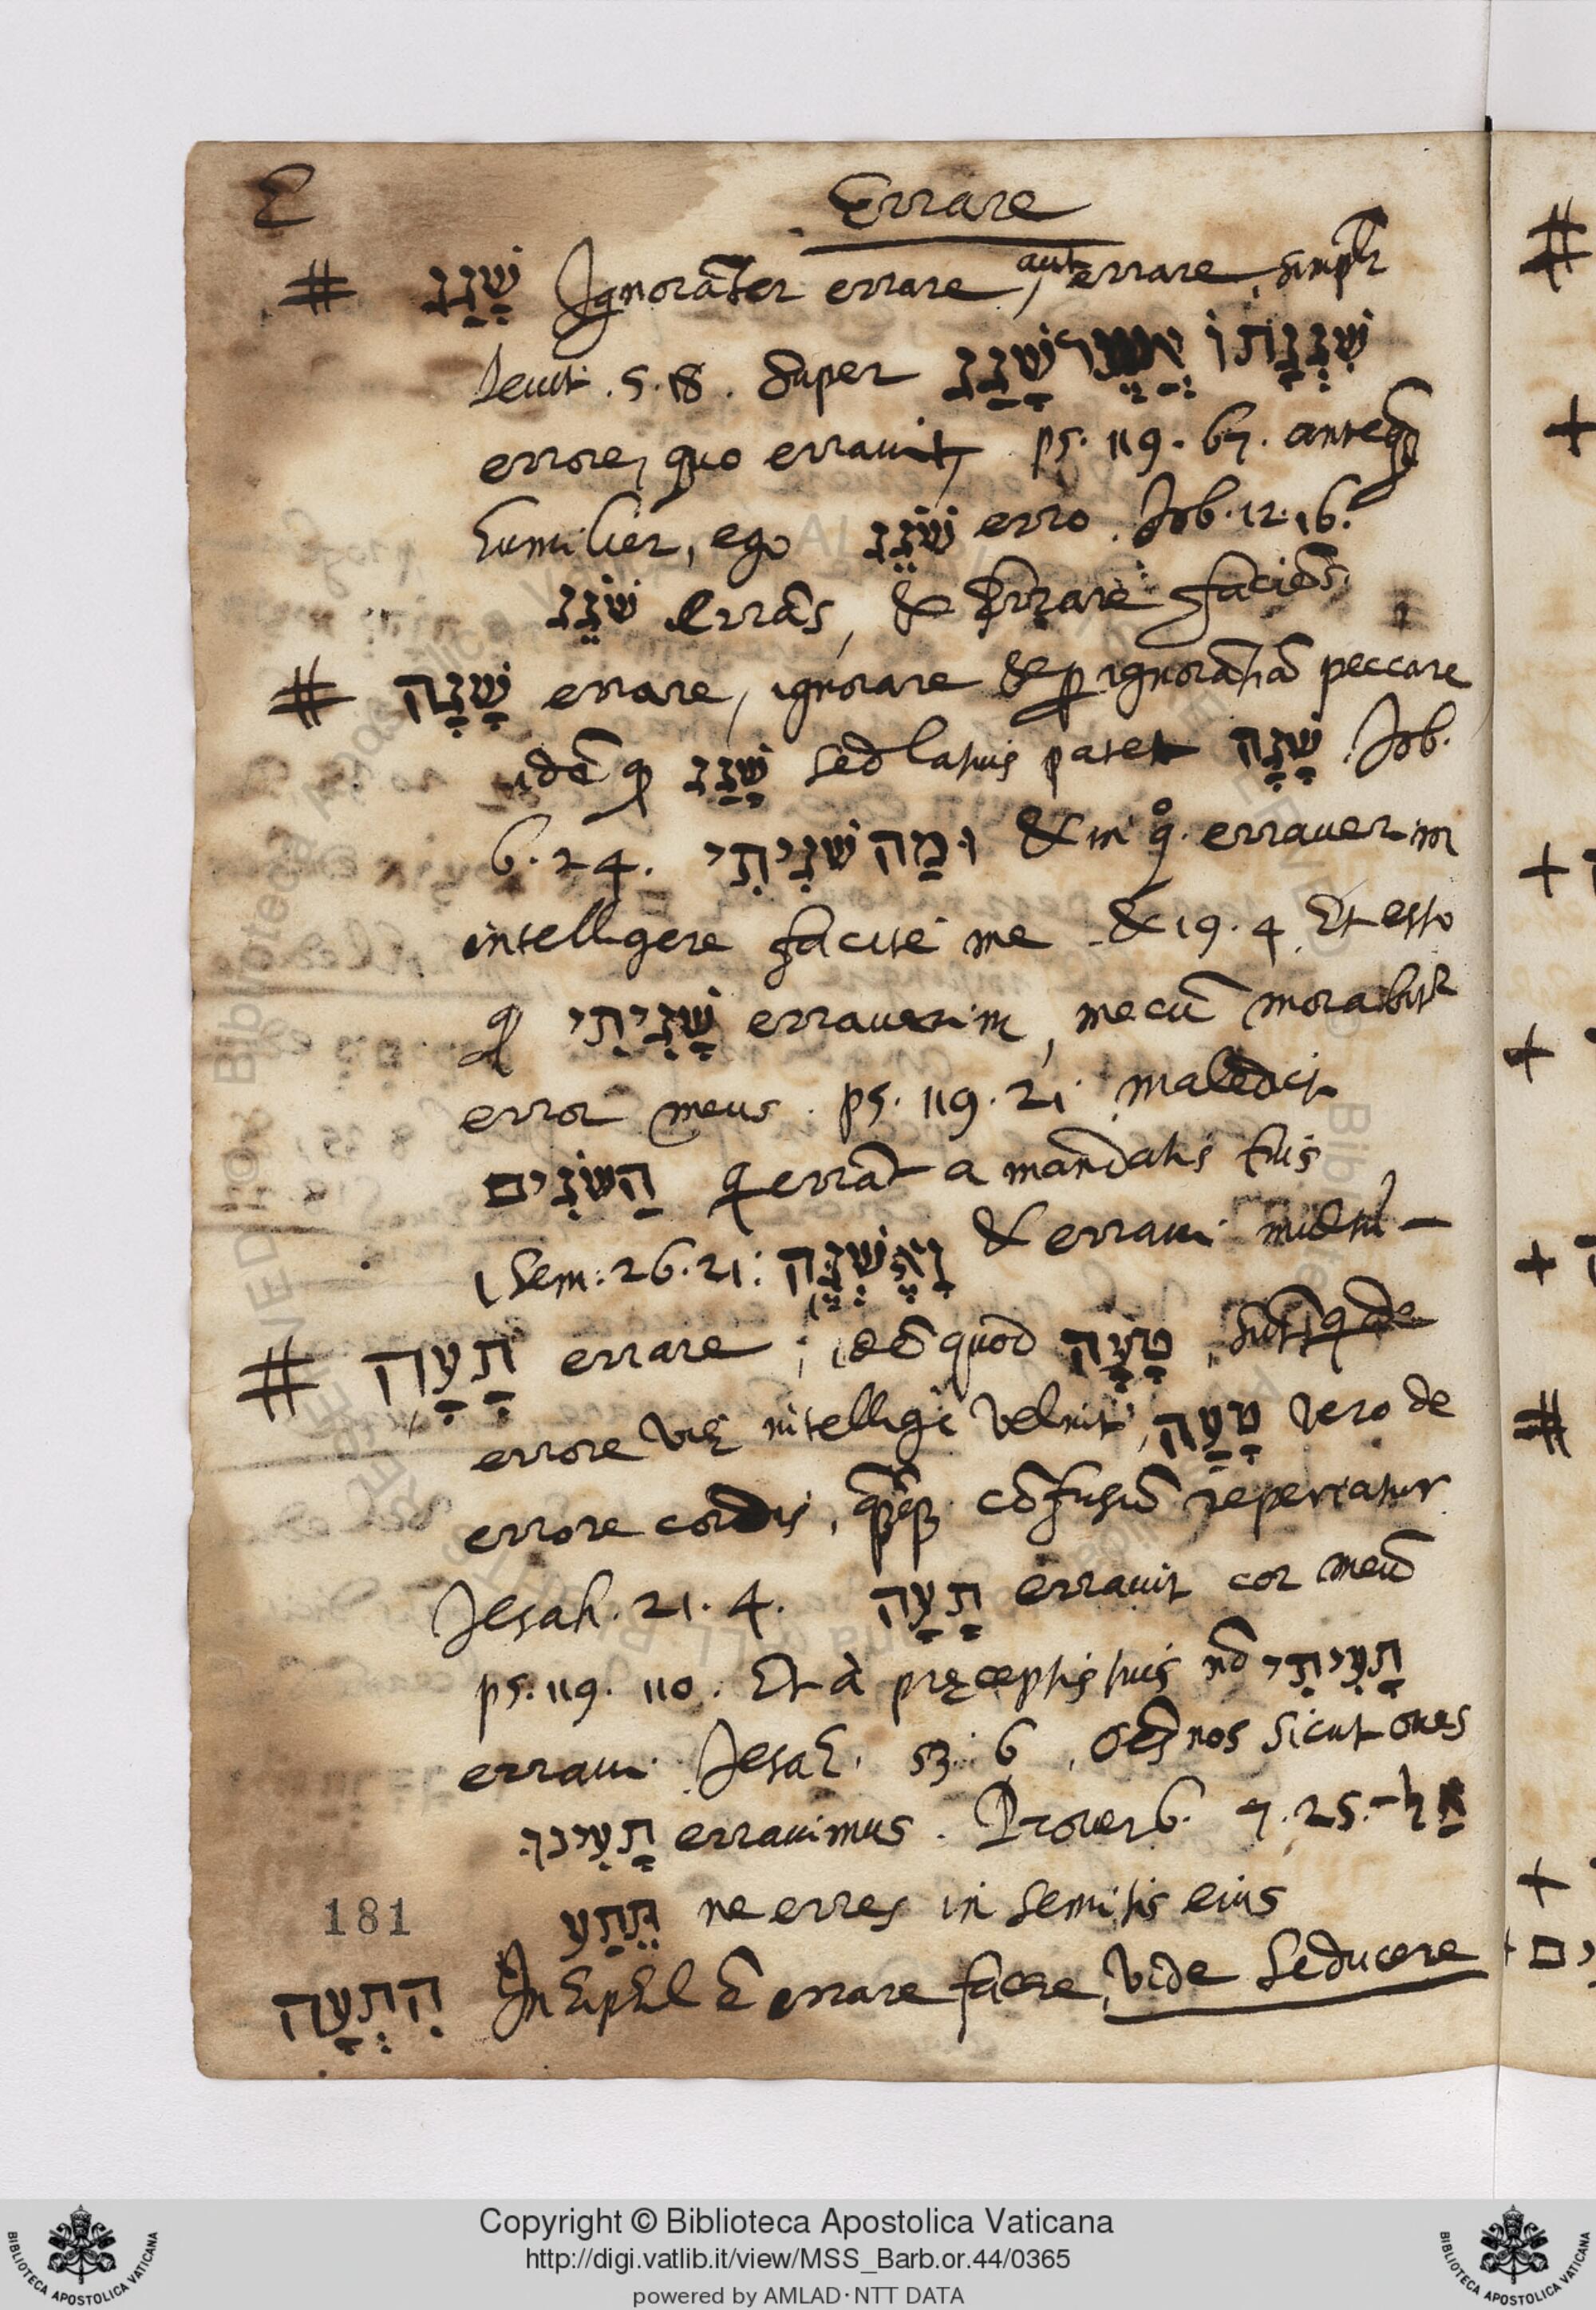 E
Errare
# שָׁגַג Ignorãter errare, aut errare simplr
Leuit. 5. 18. Super שִׁגְגָתוֹ אֲשֶׁר שָׁגַג
errore, quo errauit, ps. 119. 67. anteq̃
humilier, ego שֹׁגֵג erro. Job. 12. 16.
שֹׁגֵג Errãs, & Errare faciẽs.
# שָׁגָה errare, ignorare & ꝑ ignorãtiã peccare
idẽ ꝙ שָׁגַג sed latius patet שָׁגָה Job.
6. 24. וּמַה שָׁגִיתִי & in q̊ errauerim
intelligere facite me & 19. 4. Et esto
ꝙ שָׁגִיתִי errauerim, mecũ morabitr
error meus. ps. 119. 21. maledict
הַשֹּׁגִים q errãt a mãdatis tuis
1 Sem: 26. 21: וָאֶשְׁגֶּה & erraui
# תָּעָה errare, idẽ quod טָעָה
errore vię intelligi velnit, טָעָה vero de
errore cordis, cõfusum reperiatur
Jesah. 21. 4. תָּעָה errauit cor meũ
ps. 119. 110. Et à pręceptis tuis nõ תָעִיתִי
erraui Jesah. 53. 6, oẽs nos sicut oues
תָּעִינוּ errauimus. Prouerb. 7. 25. אַל־
תֵּתַע ne erres in semitis eius
181
הִתְעָה In hiphil ẽ errare facere, vide Seducere
Copyright © Biblioteca Apostolica Vaticana
http://digi.vatlib.it/view/MSS_Barb.or.44/0365
powered by AMLAD·NTT DATA
BIBLIOTECA APOSTOLICA VATICANA
BIBLIOTECA APOSTOLICA VATICANA